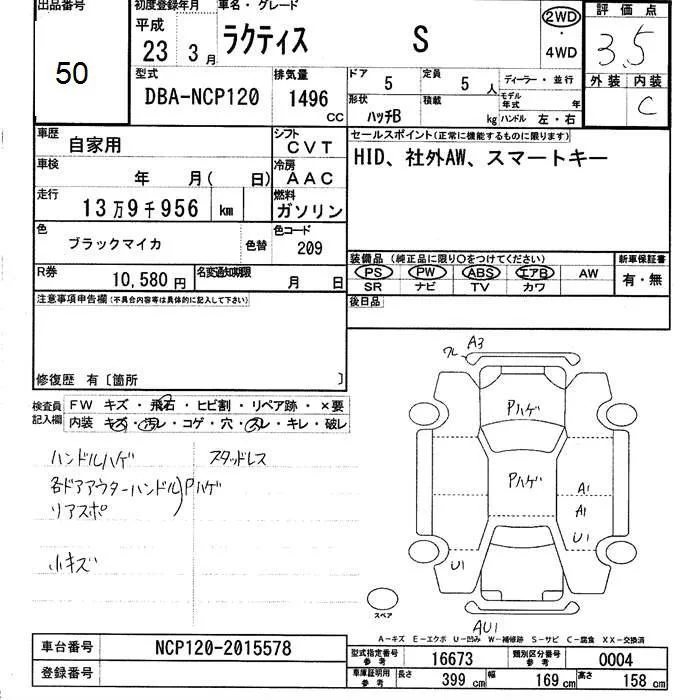 出品番号
50
初度登録年月
平成
23 3 月
車名・グレード
ラクティス S
2WD
・
4WD
評価点
3.5
外装 内装
C
型式
DBA-NCP120
排気量
1496
CC
ドア 5
定員 5 人
ディーラー・並行
形状
ハッチB
積載 kg
モデル年式 年
ハンドル 左・右
車歴
自家用
シフト
CVT
車検
年 月( 日)
冷房
AAC
走行
13万9千956 km
燃料
ガソリン
色
ブラックマイカ
色替
色コード
209
R券
10,580 円
名変通知期限
月 日
セールスポイント(正常に機能するものに限ります)
HID、社外AW、スマートキー
装備品(純正品に限り〇をつけてください)
新車保証書
PS PW ABS エアB AW
SR ナビ TV カワ
有・無
後日品
注意事項申告欄(不具合内容等は具体的に記入して下さい)
修復歴 有〔箇所 〕
検査員記入欄
FW キズ・飛石・ヒビ割・リペア跡・×要
内装 キズ・汚レ・コゲ・穴・スレ・キレ・破レ
ハンドルハゲ
スタッドレス
各ドアアウターハンドル)Pハゲ
リアスポ
小キズ
ワレ A3
Pハゲ
Pハゲ
A1
A1
U1
U1
スペア
AU1
A-キズ E-エクボ U-凹み W-補修跡 S-サビ C-腐食 XX-交換済
車台番号
NCP120-2015578
登録番号
型式指定番号
参考
16673
類別区分番号
参考
0004
車庫証明用
参考
長さ 399 cm
幅 169 cm
高さ 158 cm